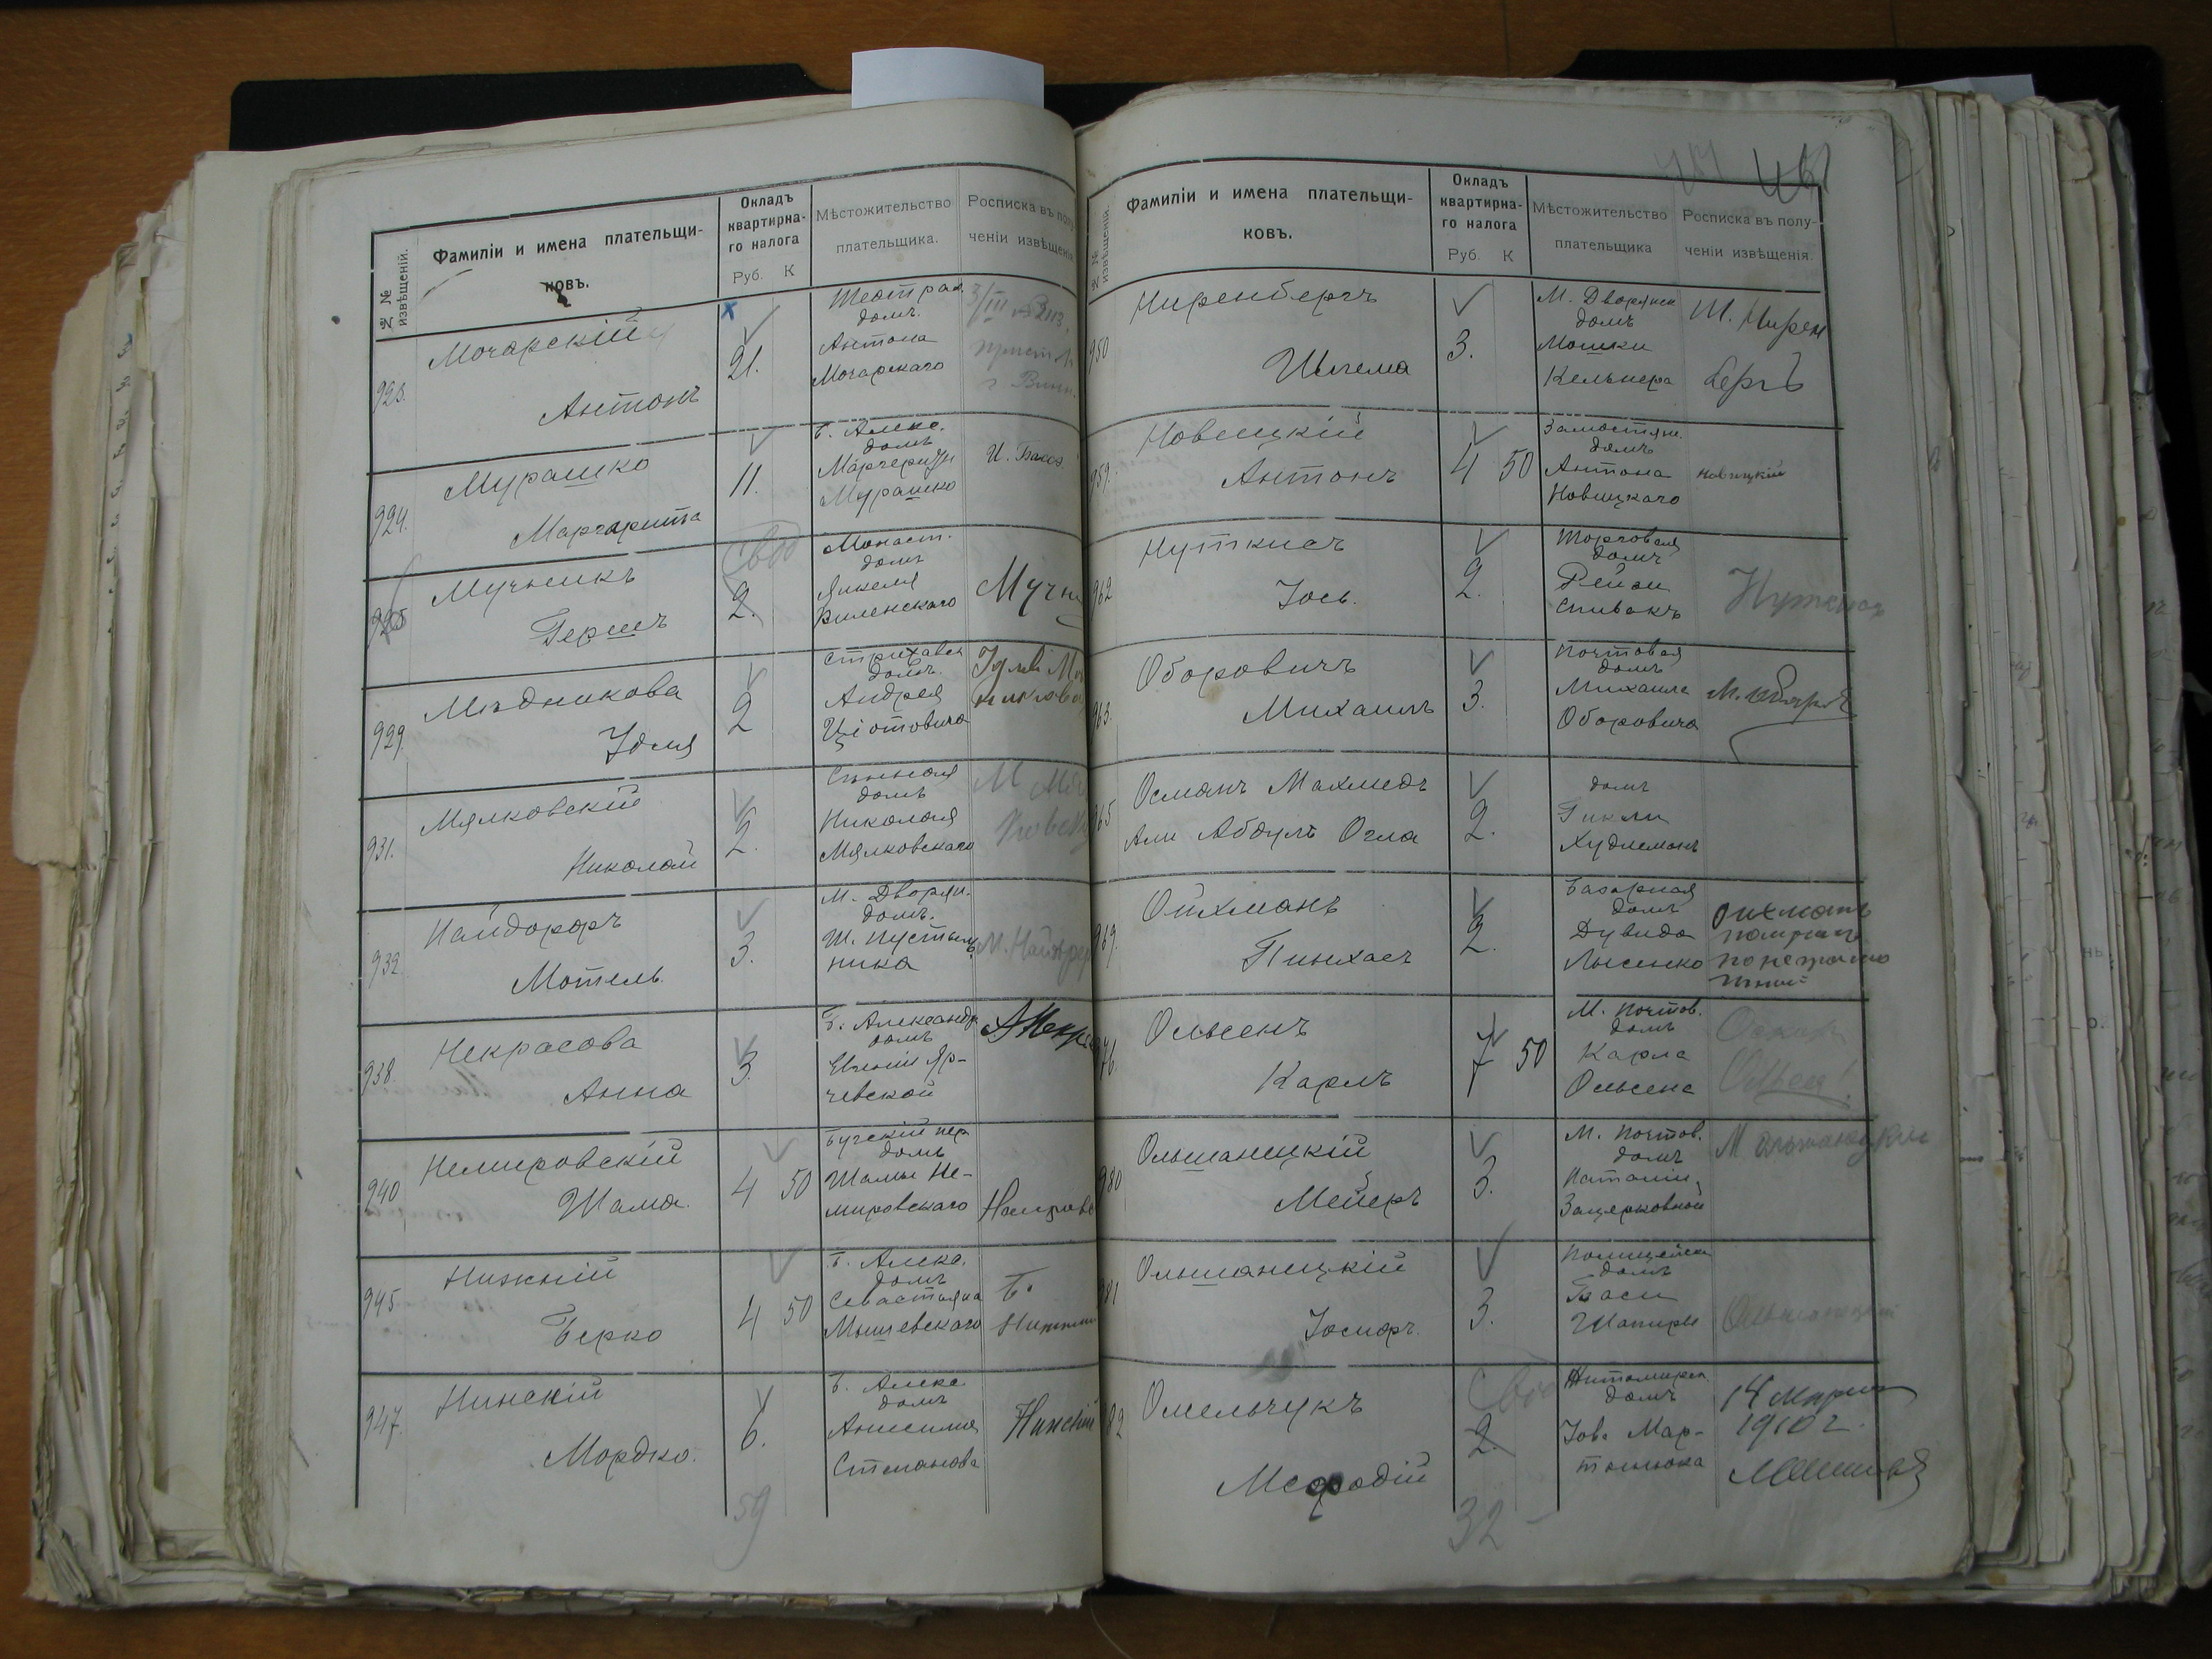 №№ извѣщеній.
Фамиліи и имена плательщи-
ковъ.
Окладъ
квартирна-
го налога
Руб. К
Мѣстожительство
плательщика.
Росписка въ полу-
ченіи извѣщенія
923.
Мочарскій
Антонъ
21.
Театрал.
домъ.
Антона
Мочарскаго
3/III
924.
Мурашко
Маргарита
11.
Б. Алекс.
домъ
Маргариты
Мурашко
925
Мучникъ
Гершъ
2.
Монаст.
домъ
Янкеля
Виленскаго
Мучн
929.
Мѣдникова
Удля
2
Стрижавск
домъ.
Андрея
Цiотовича
931.
Мялковскій
Николай
2.
Сѣнная
домъ
Николая
Мялковскаго
932.
Найдорфъ
Мотель.
3.
М. Дворян.
домъ.
Ш. Пустыль
ника
М. Найдорф
938.
Некрасова
Анна
3.
Б. Александр
домъ
Евгеніи Яр-
чевской
А Некр
940
Немировскій
Шама.
4 50
Бугскій пер
домъ
Шамы Не-
мировскаго
Немировс
945.
Нижній
Берко
4 50
Б. Алекс.
домъ
Севастьяна
Мышевскаго
Б.
947.
Нинскій
Мордко.
6.
Б. Алекс
домъ
Анисима
Степанова
Нинскій
59
№№ извѣщеній.
Фамиліи и имена плательщи-
ковъ.
Окладъ
квартирна-
го налога
Руб. К
Мѣстожительство
плательщика
Росписка въ полу-
ченіи извѣщенія.
950
Ниренбергъ
Шлема
3.
М. Дворянск
домъ
Мошки
Кельнера
Ш. Нирен
бергъ
959.
Новицкій
Антонъ
4 50
Замостян.
домъ
Антона
Новицкаго
Новицкій
962
Нуткисъ
Іось.
2.
Торговая
домъ
Рейзи
Спивакъ
Нуткисъ
963.
Оборовичъ
Михаилъ
3.
Почтовая
домъ
Михаила
Оборовича
965
Османъ Махмедъ
Али Абдулъ Огла
2.
домъ
Гикли
969.
Ойхманъ
Пинхасъ
2.
Базарная
домъ
Дувида
Лысенко
Ойхманъ
976.
Ольсенъ
Карлъ
7 50
М. Почтов.
домъ
Карла
Ольсена
Оскар
Ольсен
980
Ольшанецкій
Мейеръ
3.
М. Почтов.
домъ
Наталіи
Зацерковной
981
Ольшанецкій
Іосифъ.
3.
Полицейск
домъ
Баси
Шапиры
982
Омельчукъ
Мефодій
2.
Житомирск
домъ
Іова Мар-
тынюка
14 марта
1910 г.
32